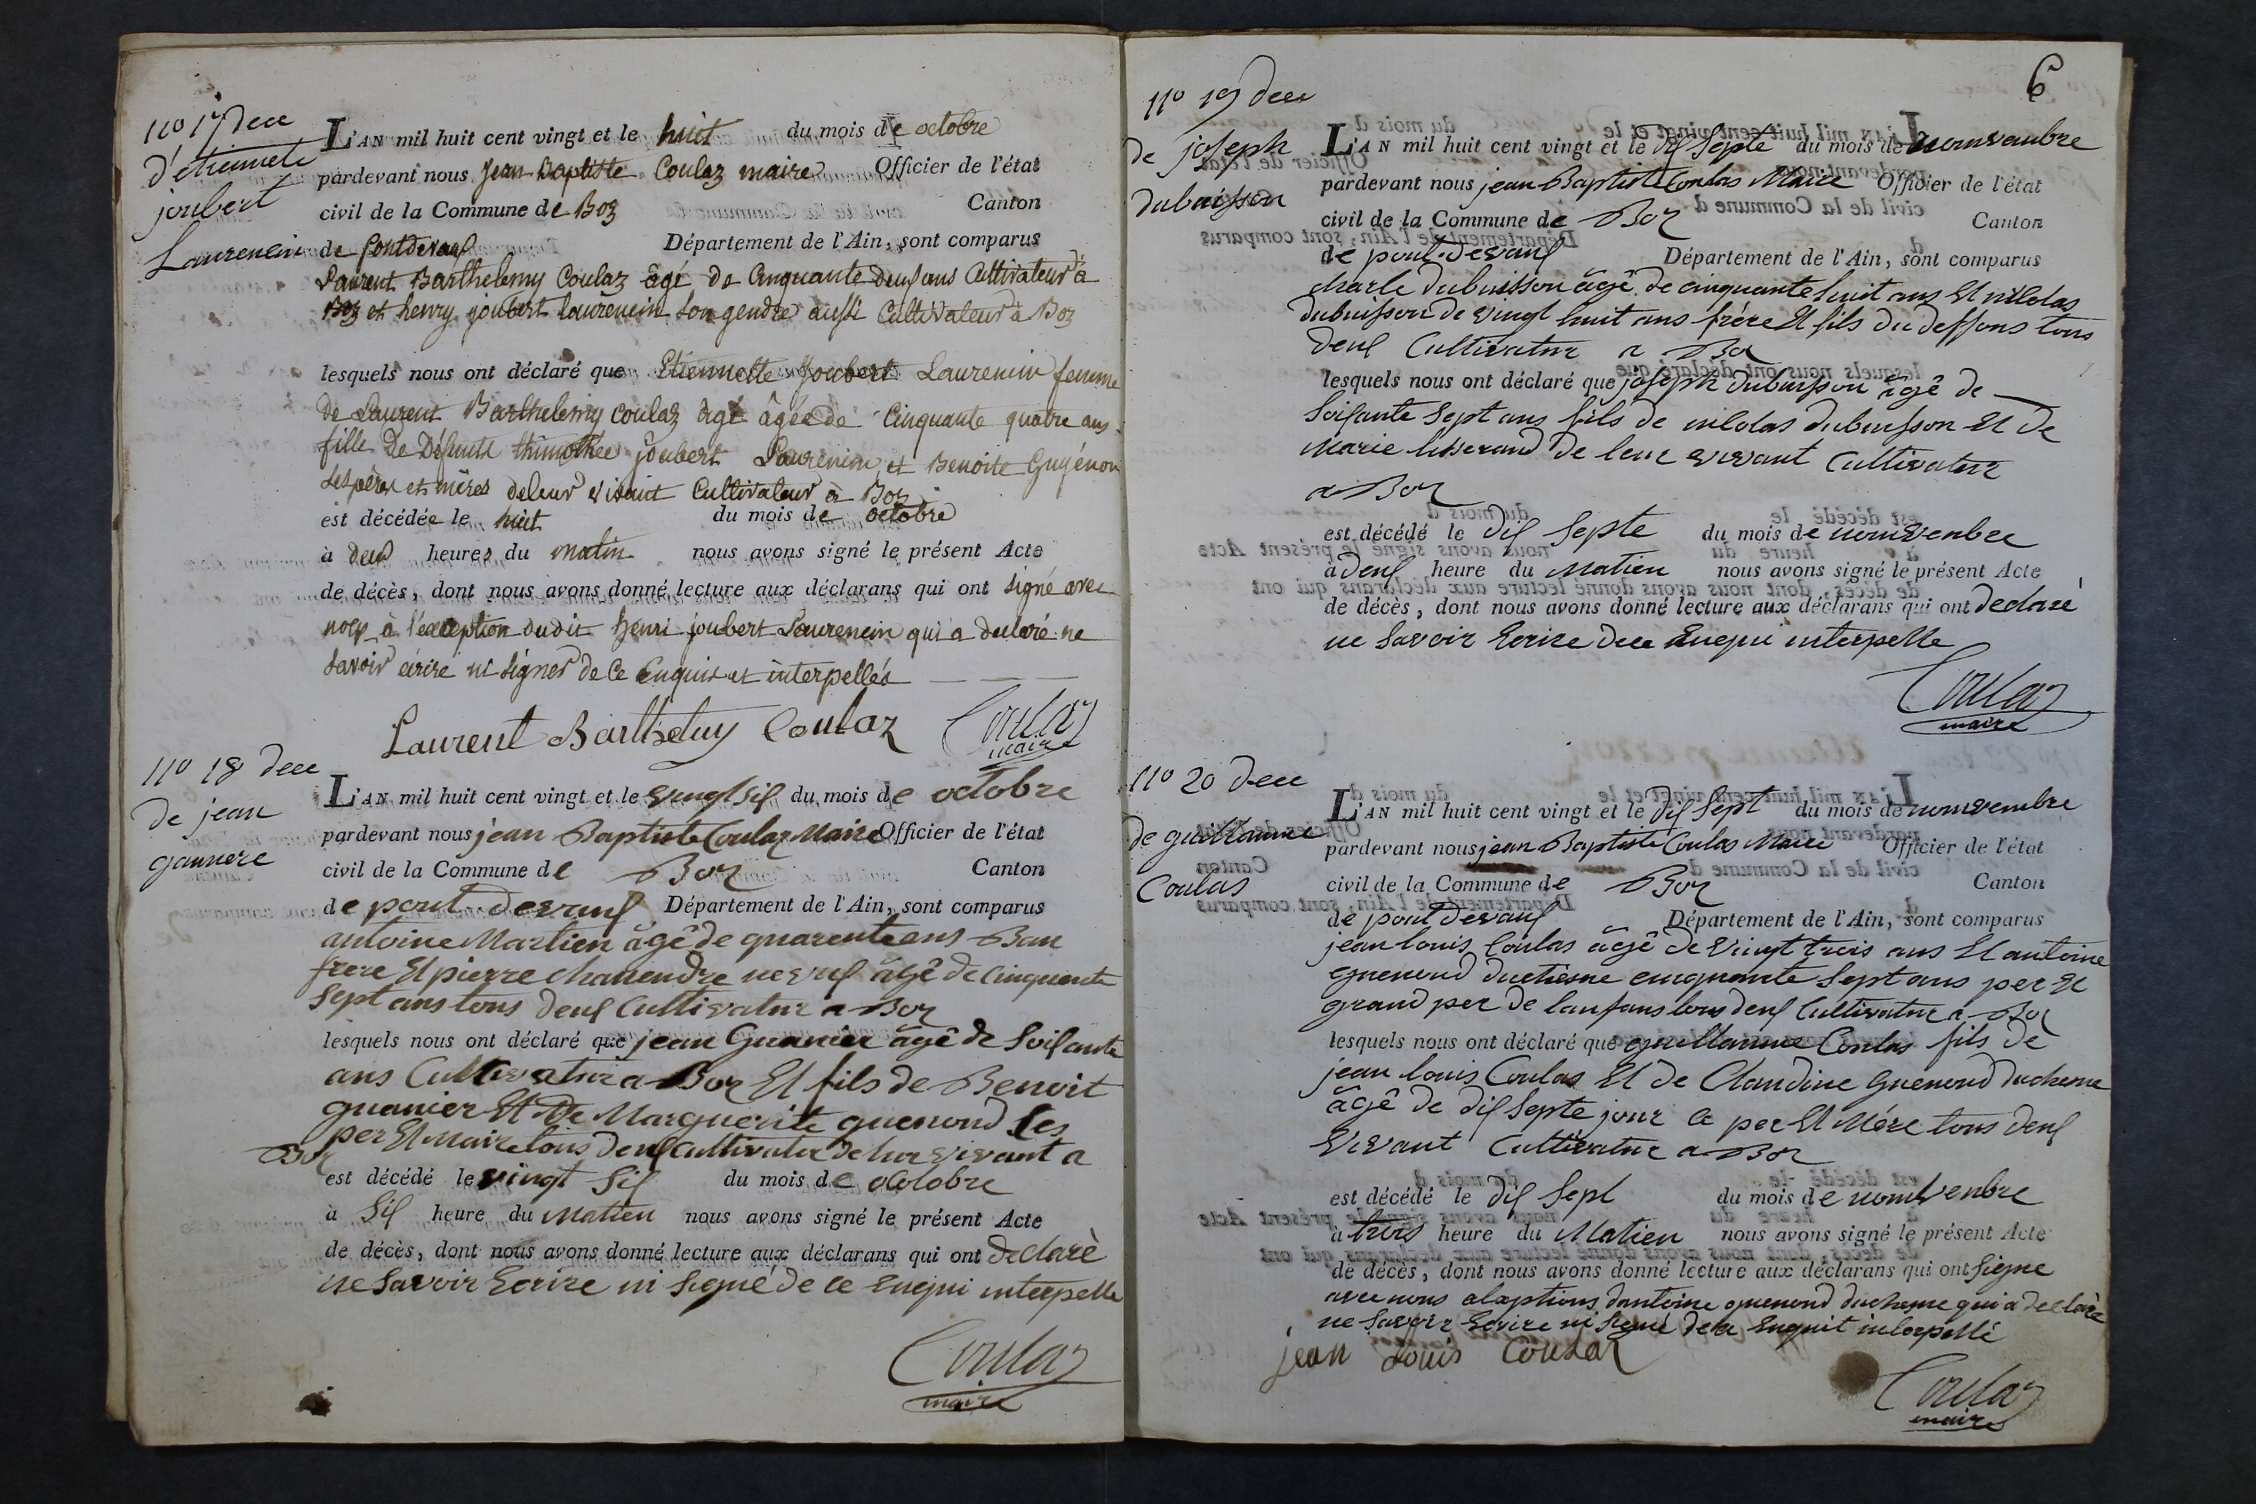 no 17 dece
d'etiennete
joubert
Laurencin
L'AN mil huit cent vingt et le huit du mois de octobre
pardevant nous Jean Baptiste Coulaz maire Officier de l'état
civil de la Commune de Boz Canton
de Pontdevaux Département de l'Ain, sont comparus
Laurent Barthelemy Coulaz âgé de Cinquante deux ans Cultivateur à
Boz et henry joubert laurencin son gendre aussi Cultivateur à Boz
lesquels nous ont déclaré que Etiennette Joubert Laurencin femme
de Laurent Barthelemy coulaz agé âgée de Cinquante quatre ans
fille de Défunts thimothée joubert Laurencin et Benoite Guyénon
ses pères et mères de leur vivant Cultivateur à Boz
est décédée le huit du mois de octobre
à deux heures du matin nous avons signé le présent Acte
de décès, dont nous avons donné lecture aux déclarans qui ont signé avec
nous à l'exception dudit henri joubert Laurencin qui a declaré ne
savoir écrire ni signer de ce enquis et interpellés
Laurent Barthelemy Coulaz Coulaz
maire
no 18 dece
de jean
gannere
L'AN mil huit cent vingt et le vingt six du mois de octobre
pardevant nous jean Baptiste Coulaz Maire Officier de l'état
civil de la Commune de Boz Canton
de pont devaux Département de l'Ain, sont comparus
antoine Martien âgê de quarente ens Bau
frere Et pierre chanendre neveux âgê de cinquente
Sept ans tous deux Cultivatur a Boz
lesquels nous ont déclaré que jean Guanier âgê de Soixante
ans Cultivatur a Boz Et fils de Benoit
guanier Et De Marguerite guenond Ses
per Et Maire tous deux Cultivater de lur vivant a
Boz
est décédé le vingt Six du mois de octobre
à Six heure du Matien nous avons signé le présent Acte
de décès, dont nous avons donné lecture aux déclarans qui ont declarè
ne Savoir Ecrire ni Signé de ce enequi interpelle
Coulaz
maire
6
no 19 dece
de joseph
dubuisson
L'AN mil huit cent vingt et le dix Septe du mois de nomvenbre
pardevant nous jean Baptiste Coulas Maire Officier de l'état
civil de la Commune de Boz Canton
de pont devaux Département de l'Ain, sont comparus
charle dubuisson âgê de cinquante huit ans Et nilolas
dubuisson de vingt huit ans frére Et fils du deffons tous
deux Cultivatur a Boz
lesquels nous ont déclaré que joseph dubuisson âgê de
Soisante Sept ans fils de nilolas dubuisson Et de
Marie tisserand de leur vivant Cultivatur
a Boz
est décédé le dix Septe du mois de nomvenbre
à deux heure du Matien nous avons signé le présent Acte
de décès, dont nous avons donné lecture aux déclarans qui ont declarè
ne Savoir Ecrire dece Enequi interpelle
Coulaz
maire
no 20 dece
de guillaume
Coulas
L'AN mil huit cent vingt et le dix Sept du mois de nomvembre
pardevant nous jean Baptiste Coulas Maire Officier de l'état
civil de la Commune de Boz Canton
de pont devaux Département de l'Ain, sont comparus
jean louis Coulas âgê de vingt trois ans Et antoine
guenond duchesne cinquante Sept ans per Et
grand per de lanfans tous deux Cultivatur a Boz
lesquels nous ont déclaré que guillaume Coulas fils de
jean louis Coulas Et de Claudine guenond duchesne
âgê de dix Septe jour ce per Et Mére tous deux
vivant Cultivatur a Boz
est décédé le dix Sept du mois de nomvenbre
à trois heure du Matien nous avons signé le présent Acte
de décès, dont nous avons donné lecture aux déclarans qui ont Signe
avec nous alaxptions dantoine guenond duchesne qui a declarè
ne Savoir Ecrire ni Signé de ce Enquit interpellé
jean Louis Coulaz
Coulaz
maire